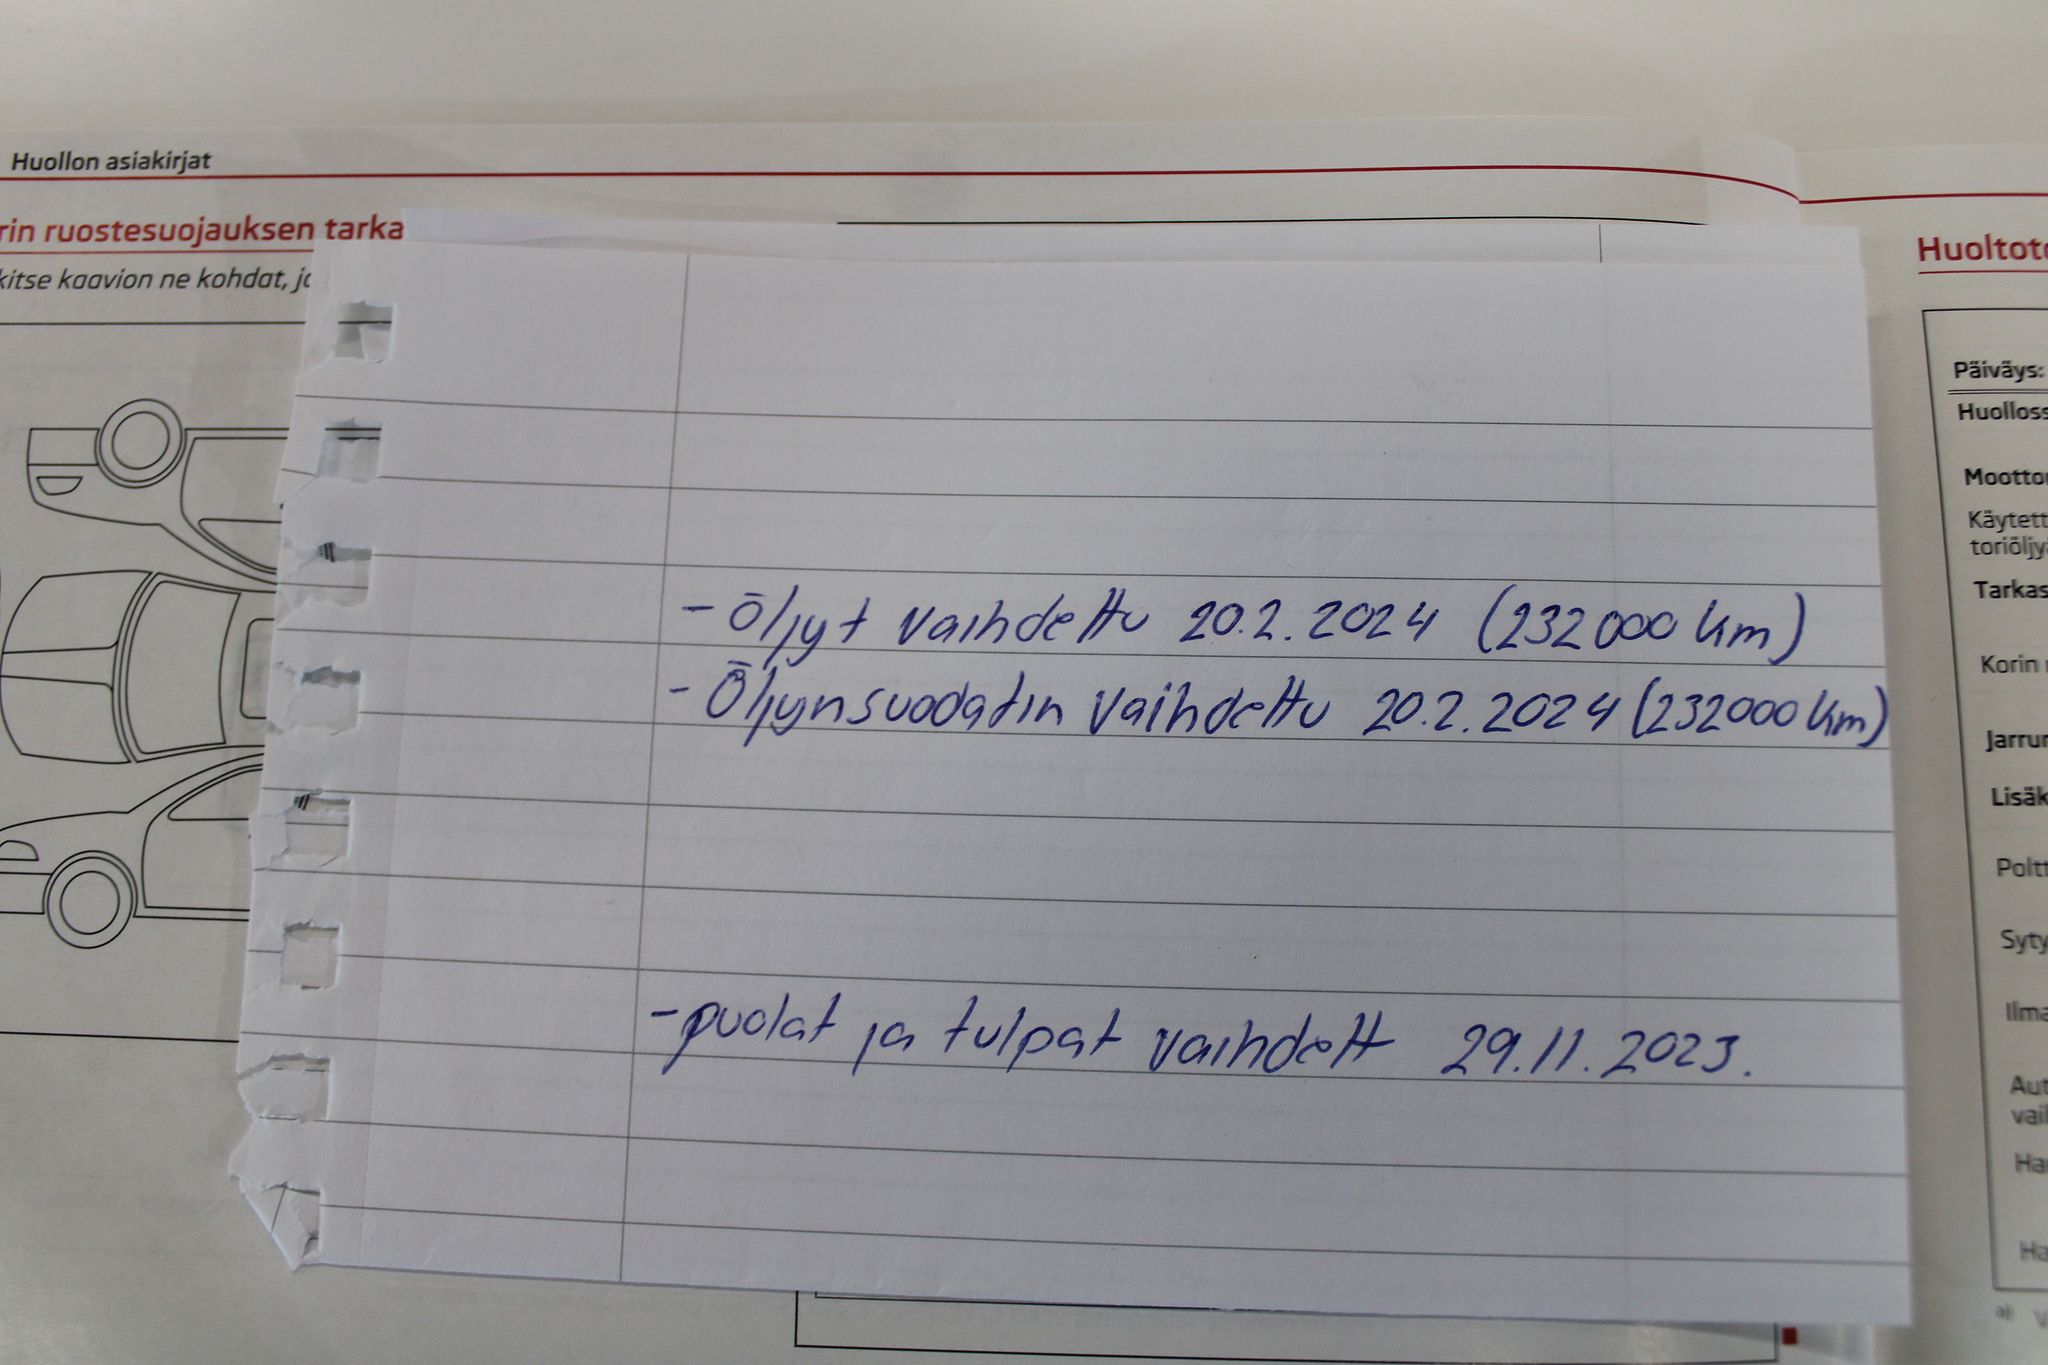 Huollon asiakirjat
rin ruostesuojauksen tarka
kitse kaavion ne kohdat, jo
- Öljyt vaihdettu 20.2.2024 (232000 km)
- Öljynsuodatin vaihdettu 20.2.2024 (232000 km)
- puolat ja tulpat vaihdett 29.11.2023.
Huoltot
Päiväys:
Huolloss
Moottor
Käytett
toriöljy
Tarkas
Korin
Jarru
Lisäk
Poltt
Syty
Ilma
Aut
vai
Ha
Ha
a)